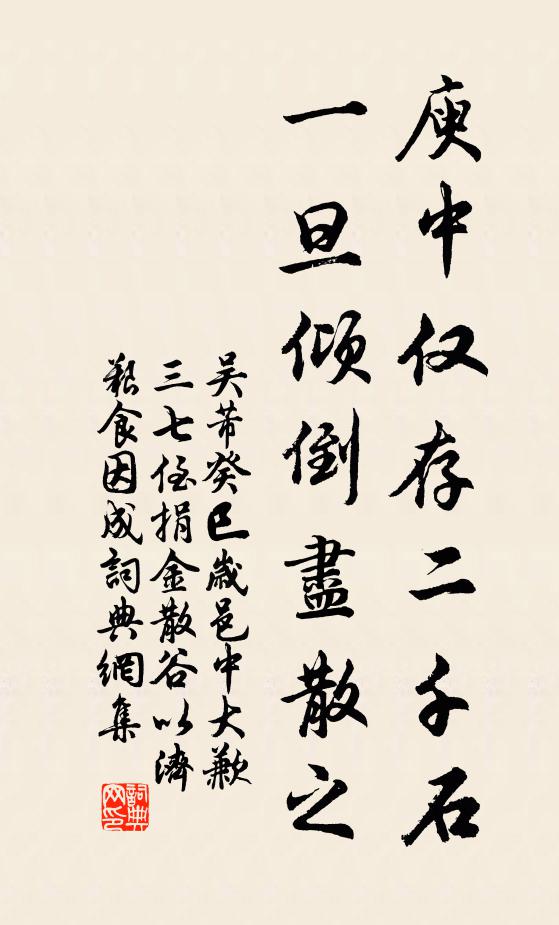 庾中仅存二千石
一旦倾倒盡散之
吴芾癸巳歲邑中大歉
三七侄捐金散谷以濟
艱食因成詞典網集
詞典网印